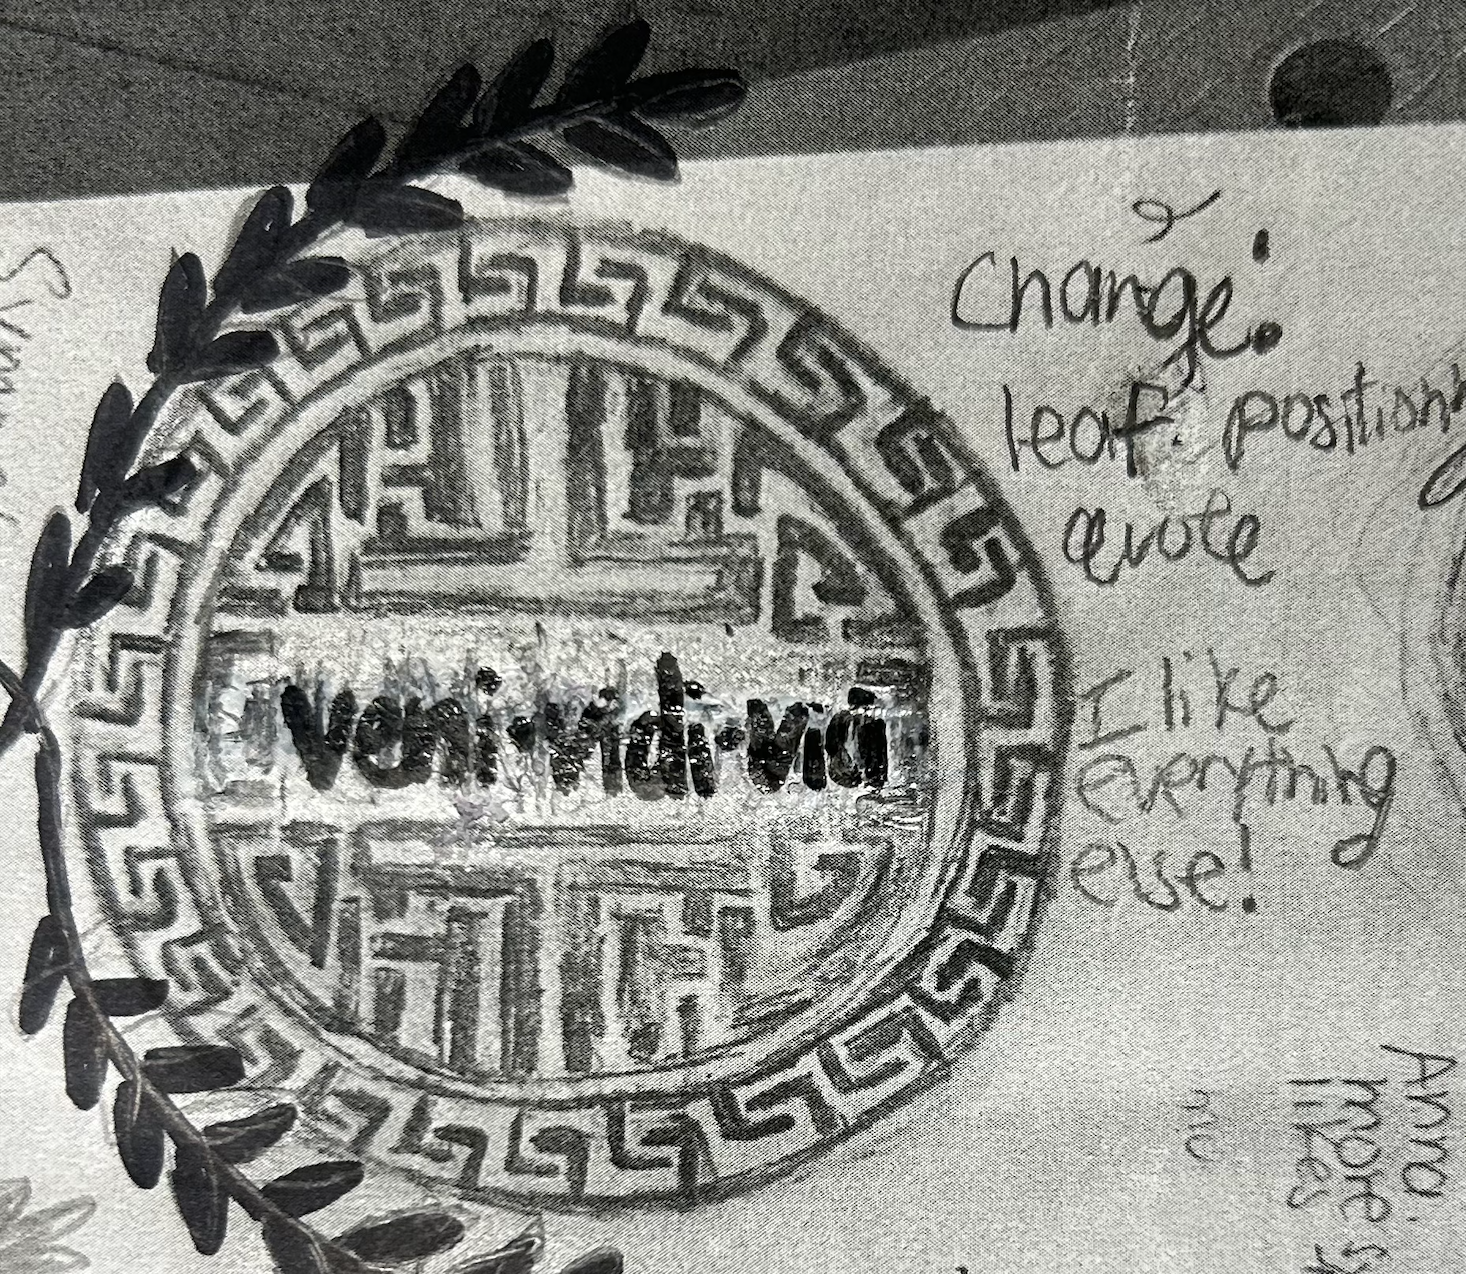 veni·vidi·vici
Change:
leaf position
quote
I like
everything
else!
no
Anna:
more s
likes